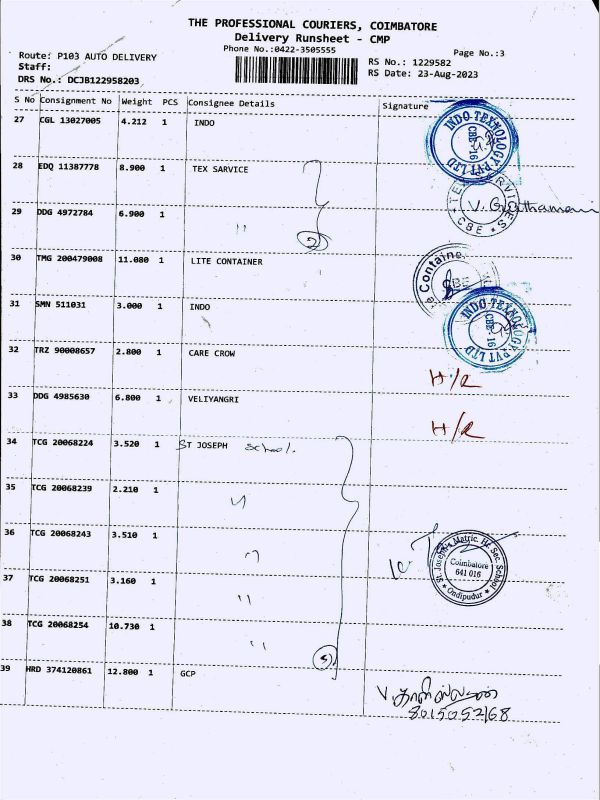 THE PROFESSIONAL COURIERS, COIMBATORE
Delivery Runsheet - CMP
Phone No.:0422-3505555
Page No.:3
Route: P103 AUTO DELIVERY
RS No.: 1229582
Staff:
RS Date: 23-Aug-2023
DRS No.: DCJB122958203
S No Consignment No Weight PCS Consignee Details Signature
27 CGL 13027005 4.212 1 INDO
INDO TEXNOLOGY PVT LTD
CBE-16
28 EDQ 11387778 8.900 1 TEX SARVICE
SERVICES
CBE
29 DDG 4972784 6.900 1 "
2
30 TMG 200479008 11.080 1 LITE CONTAINER
Container
CBE
31 SMN 511031 3.000 1 INDO
INDO TEXNOLOGY PVT LTD
CBE-16
32 TRZ 90008657 2.800 1 CARE CROW
H/R
33 DDG 4985630 6.800 1 VELIYANGRI
H/R
34 TCG 20068224 3.520 1 ST JOSEPH School.
35 TCG 20068239 2.210 1 "
36 TCG 20068243 3.510 1 "
St. Joseph's Matric. Hr. Sec. School
Coimbatore
641 016
Ondipudur
37 TCG 20068251 3.160 1 "
38 TCG 20068254 10.730 1 "
5
39 HRD 374120861 12.800 1 GCP
8015052168